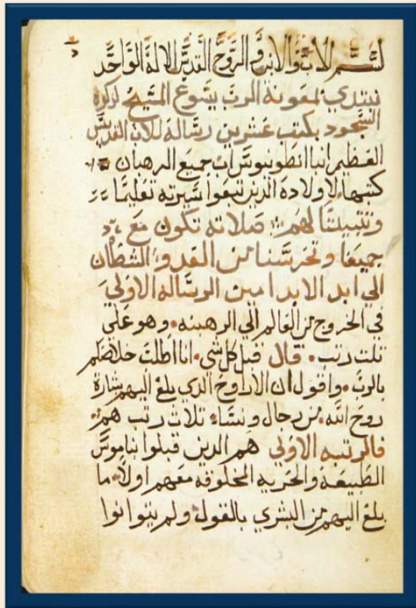 بسم الاب والابن والروح القدس الاله الواحد
نبتدي بمعونة الرب يسوع المسيح لذكره
السجود بكتب عشرين رسالة للاب القديس
العظيم انبا انطونيوس اب جميع الرهبان
كتبها لاولاده الذين تبعوا سيرته تعليما
وتثبيتا لهم صلاته تكون مع
جميعا وتحرسنا من العدو الشيطان
الي ابد الابد امين الرساله الاولي
في الخروج من العالم الي الرهبنه وهو علي
ثلث رتب قال قبل كل شي انا اطلب خلاصكم
بالرب واقول ان الارواح الذي بلغ اليهم بشارة
روح الله من رجال ونساء ثلاث رتب هم
فالرتبه الاولي هم الدين قبلوا بناموس
الطبيعة والحرية المخلوقه معهم اولا ما
بلغ اليهم من البشري بالقول ولم يتوانوا